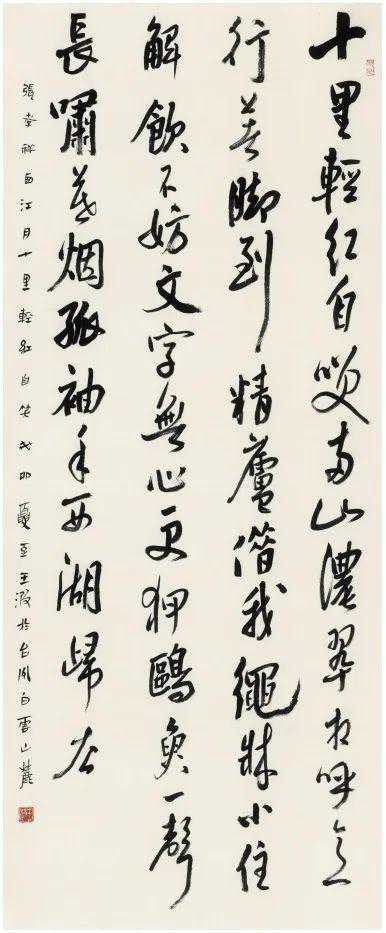 十里輕紅自咲两山濃翠相呼意
行著脚到精廬借我繩牀小住
解飲不妨文字無心更狎鷗魚一聲
長嘯暮烟孤袖手西湖歸去
張孝祥西江月十里輕紅自笑 卯夏至王波於台州白雲山麓